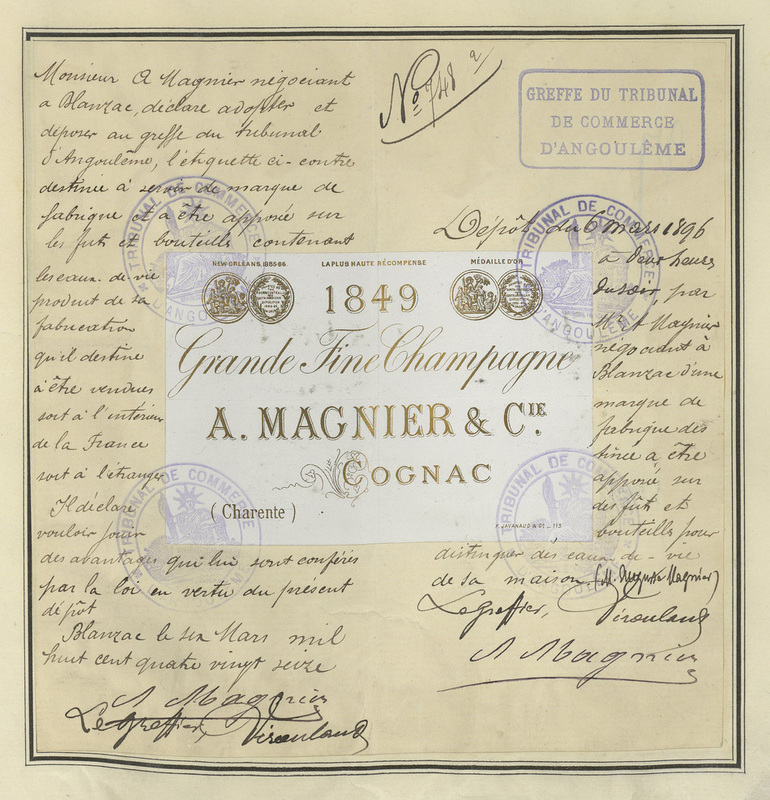 Monsieur A Magnier négociant
a Blanzac, déclare adopter et
déposer au greffe du tribunal
d'Angoulême, l'étiquette ci-contre
destinée à servir de marque de
fabrique et à être apposée sur
les futs et bouteills contenant
les eaux-de-vie
product de sa
fabrication
qu'il destine
à être vendues
soit à l'intérieur
de la France
soit à l'étranger
Il déclare
vouloir jouir
des avantages qui lui sont conférés
par la loi en vertu du présent
dépôt
Blanzac le six Mars mil
huit cent quatre vingt seize
A Magnier
Le greffier, Viroulaud
No 748 a
GREFFE DU TRIBUNAL
DE COMMERCE
D'ANGOULÊME
Dépôt du 6 mars 1896
à deux heures
du soir par
Mr A Magnier
négociant à
Blanzac d'une
marque de
fabrique des
tinée a être
apposée sur
des fûts et
bouteills pour
distinguer des eaux-de-vie
de sa maison. (M. Auguste Magnier)
Le greffier, Viroulaud
A Magnier
NEW-ORLÉANS, 1885-86. LA PLUS HAUTE RÉCOMPENSE MÉDAILLE D'OR
1849
Grande Fine Champagne
A. MAGNIER & CIE.
COGNAC
( Charente )
F. JAVANAUD & Ce _ 115
TRIBUNAL DE COMMERCE
D'ANGOULÊME
TRIBUNAL DE COMMERCE
D'ANGOULÊME
TRIBUNAL DE COMMERCE
TRIBUNAL DE COMMERCE